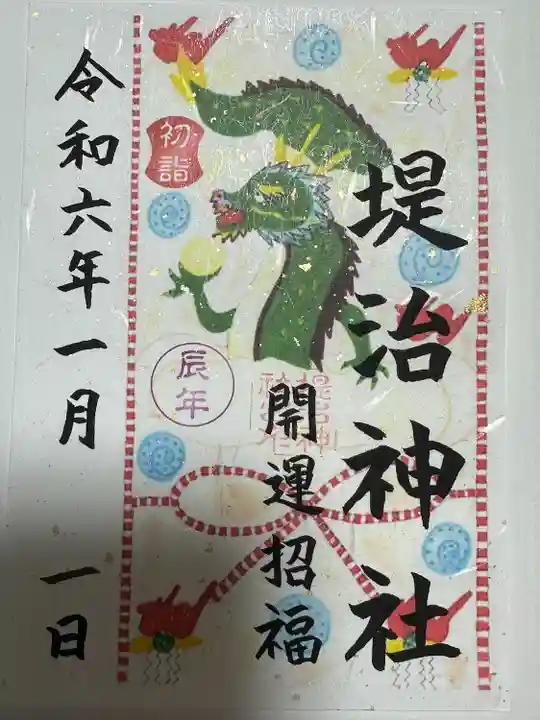 堤治神社
開運招福
初詣
辰年
令和六年一月一日